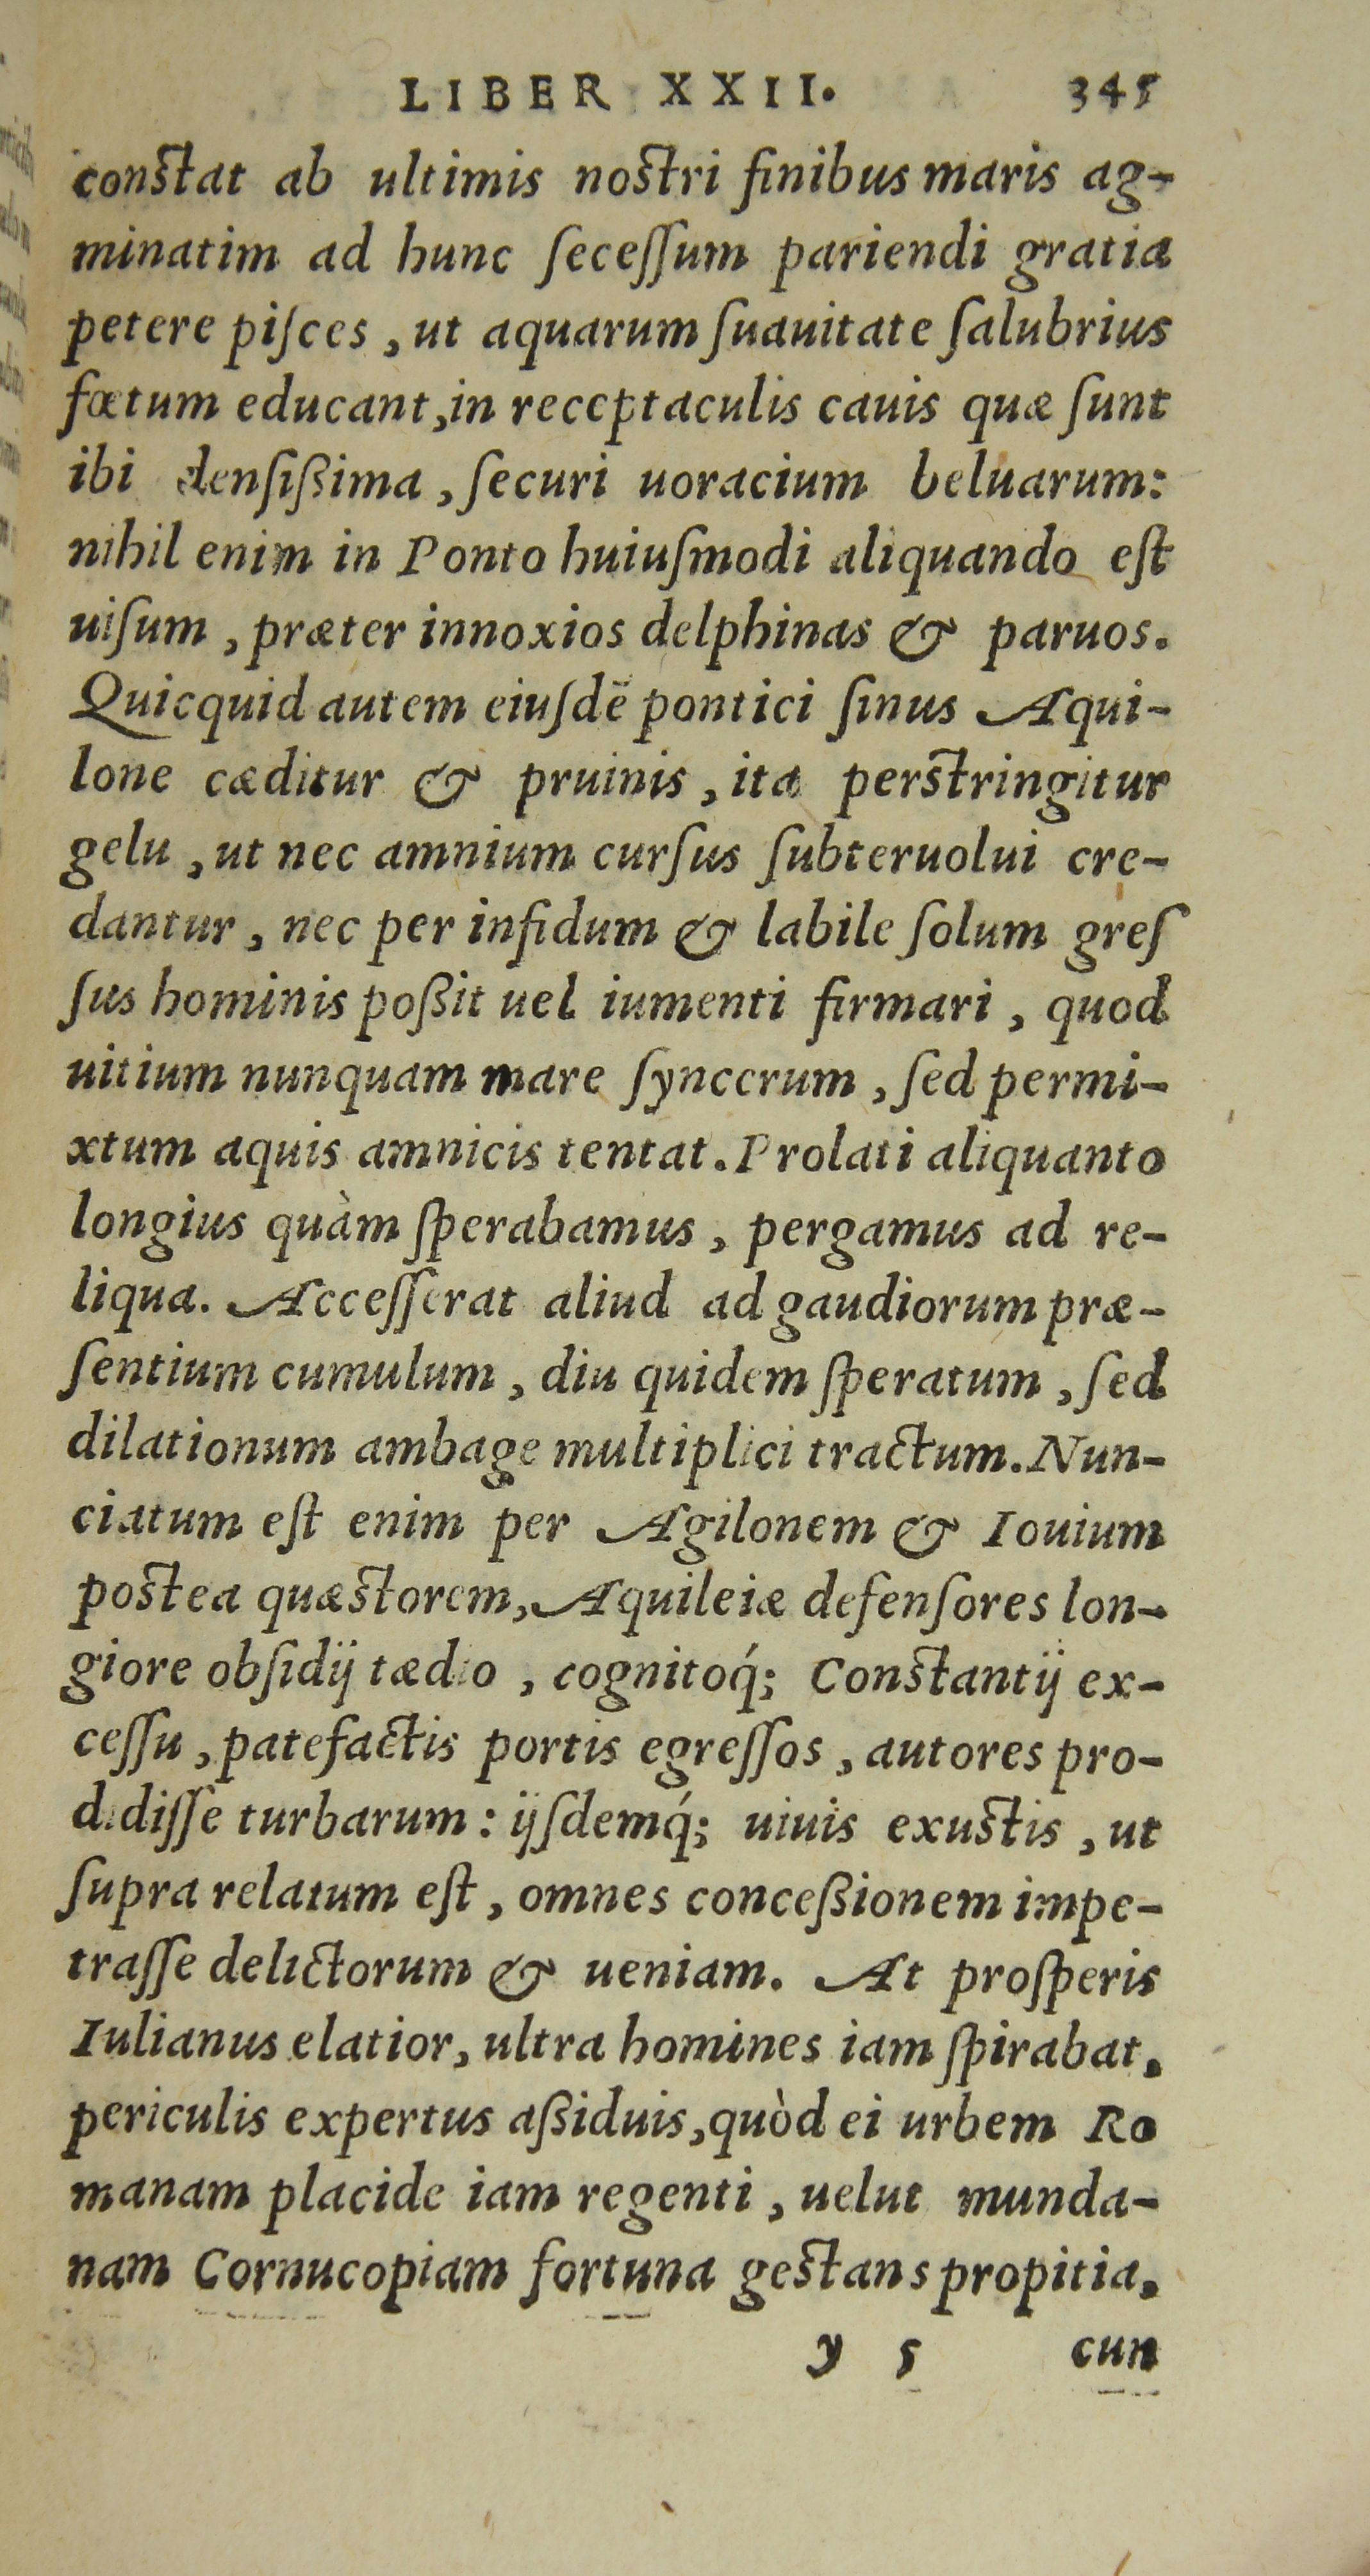 LIBER XXII. 345
conſtat ab ultimis noſtri finibus maris ag-
minatim ad hunc ſeceſſum pariendi gratia
petere piſces, ut aquarum ſuauitate ſalubrius
fœtum educant, in receptaculis cauis quæ ſunt
ibi denſiſſima, ſecuri uoracium beluarum:
nihil enim in Ponto huiuſmodi aliquando eſt
uiſum, præter innoxios delphinas & paruos.
Quicquid autem eiuſdē pontici ſinus Aqui-
lone cæditur & pruinis, ita perſtringitur
gelu, ut nec amnium curſus ſubteruolui cre-
dantur, nec per infidum & labile ſolum greſ
ſus hominis poßit uel iumenti firmari, quod
uitium nunquam mare ſyncerum, ſed permi-
xtum aquis amnicis tentat. Prolati aliquanto
longius quàm ſperabamus, pergamus ad re-
liqua. Acceſſerat aliud ad gaudiorum præ-
ſentium cumulum, diu quidem ſperatum, ſed
dilationum ambage multiplici tractum. Nun-
ciatum eſt enim per Agilonem & Iouium
poſtea quæſtorem, Aquileiæ defenſores lon-
giore obſidij tædio, cognitoq́; Conſtantij ex-
ceſſu, patefactis portis egreſſos, autores pro-
didiſſe turbarum: ijſdemq́; uiuis exuſtis, ut
ſupra relatum eſt, omnes conceßionem impe-
traſſe delictorum & ueniam. At proſperis
Iulianus elatior, ultra homines iam ſpirabat,
periculis expertus aßiduis, quòd ei urbem Ro
manam placide iam regenti, uelut munda-
nam Cornucopiam fortuna geſtans propitia,
y 5 cun